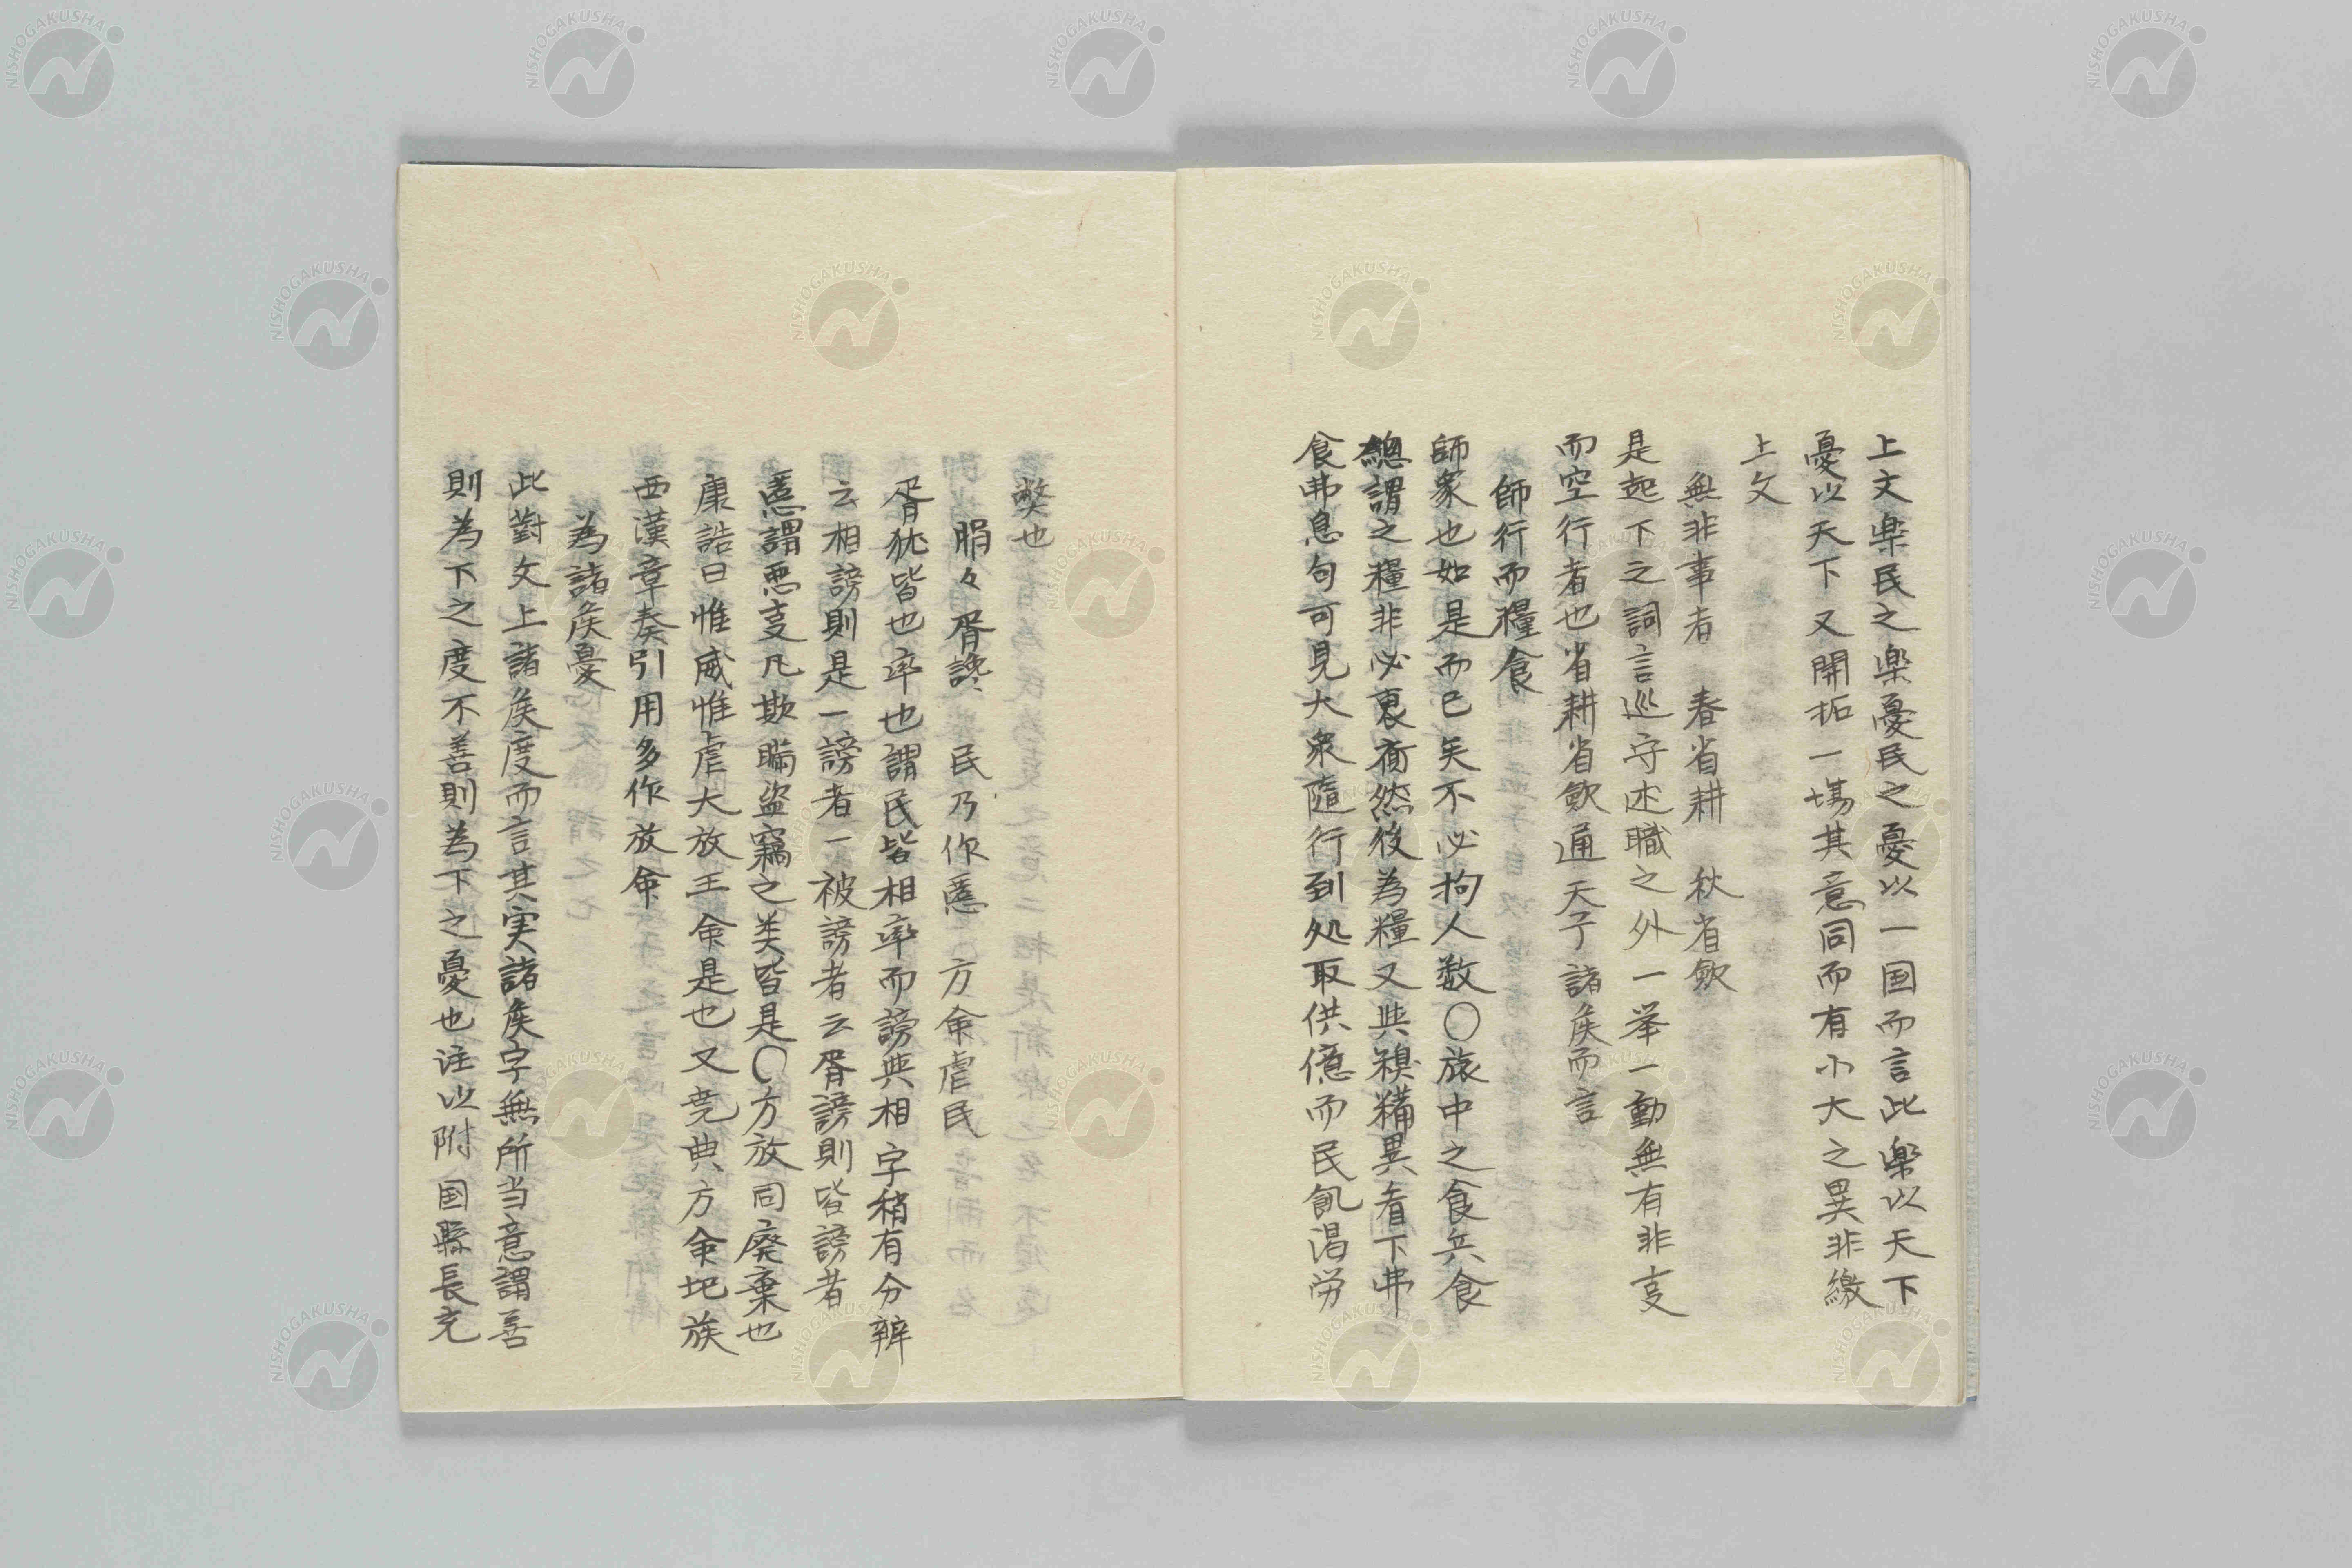 上文楽民之楽憂民之憂以一国而言此楽以天下
憂以天下又開拓一場其意同而有小大之異非繳
上文
無非事者　春省耕　秋省歛
是起下之詞言巡守述職之外一举一動無有非叓
而空行者也省耕省歛通天子諸矦而言
師行而糧食
師衆也如是而已矣不必拘人数〇旅中之食兵食
總謂之糧非必裹𬗌然後為糧又與糗糒異看下弗
食弗息句可見大衆隨行到処取供億而民飢渇労
弊也
睊々胥讒　民乃作慝　方命虐民
胥犹皆也率也謂民皆相率而謗與相字稍有分辨
云相謗則是一謗者一被謗者云胥謗則皆謗者
慝謂悪叓凡欺瞞盗竊之类皆是〇方放同廃棄也
康誥曰惟威惟虐大放王命是也又堯典方命圯族
西漢章奏引用多作放命
為諸矦憂
此對文上諸矦度而言其実諸矦字無所当意謂善
則為下之度不善則為下之憂也注以附国縣長充
NISHOGAKUSHA